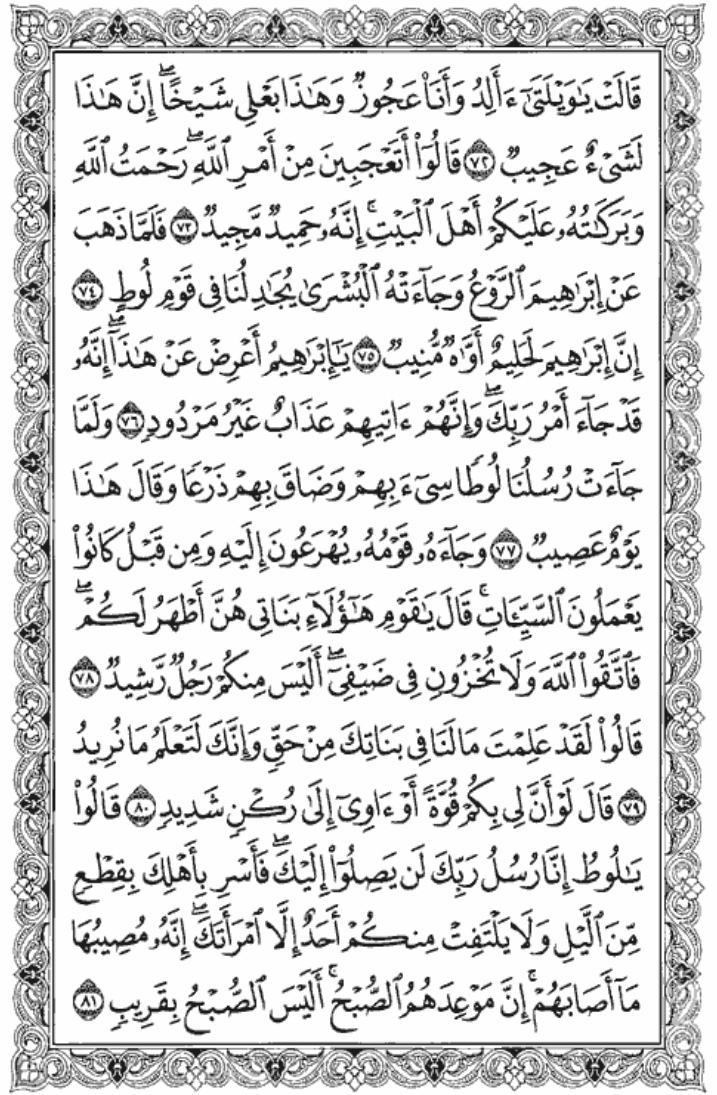 قَالَتْ يَٰوَيْلَتَىٰٓ ءَأَلِدُ وَأَنَا۠ عَجُوزٌ وَهَٰذَا بَعْلِى شَيْخًا ۖ إِنَّ هَٰذَا
لَشَىْءٌ عَجِيبٌ ﴿٧٢﴾ قَالُوٓا۟ أَتَعْجَبِينَ مِنْ أَمْرِ ٱللَّهِ ۖ رَحْمَتُ ٱللَّهِ
وَبَرَكَٰتُهُۥ عَلَيْكُمْ أَهْلَ ٱلْبَيْتِ ۚ إِنَّهُۥ حَمِيدٌ مَّجِيدٌ ﴿٧٣﴾ فَلَمَّا ذَهَبَ
عَنْ إِبْرَٰهِيمَ ٱلرَّوْعُ وَجَآءَتْهُ ٱلْبُشْرَىٰ يُجَٰدِلُنَا فِى قَوْمِ لُوطٍ ﴿٧٤﴾
إِنَّ إِبْرَٰهِيمَ لَحَلِيمٌ أَوَّٰهٌ مُّنِيبٌ ﴿٧٥﴾ يَٰٓإِبْرَٰهِيمُ أَعْرِضْ عَنْ هَٰذَآ ۖ إِنَّهُۥ
قَدْ جَآءَ أَمْرُ رَبِّكَ ۖ وَإِنَّهُمْ ءَاتِيهِمْ عَذَابٌ غَيْرُ مَرْدُودٍ ﴿٧٦﴾ وَلَمَّا
جَآءَتْ رُسُلُنَا لُوطًا سِىٓءَ بِهِمْ وَضَاقَ بِهِمْ ذَرْعًا وَقَالَ هَٰذَا
يَوْمٌ عَصِيبٌ ﴿٧٧﴾ وَجَآءَهُۥ قَوْمُهُۥ يُهْرَعُونَ إِلَيْهِ وَمِن قَبْلُ كَانُوا۟
يَعْمَلُونَ ٱلسَّيِّـَٔاتِ ۚ قَالَ يَٰقَوْمِ هَٰٓؤُلَآءِ بَنَاتِى هُنَّ أَطْهَرُ لَكُمْ ۖ
فَٱتَّقُوا۟ ٱللَّهَ وَلَا تُخْزُونِ فِى ضَيْفِىٓ ۖ أَلَيْسَ مِنكُمْ رَجُلٌ رَّشِيدٌ ﴿٧٨﴾
قَالُوا۟ لَقَدْ عَلِمْتَ مَا لَنَا فِى بَنَاتِكَ مِنْ حَقٍّ وَإِنَّكَ لَتَعْلَمُ مَا نُرِيدُ
﴿٧٩﴾ قَالَ لَوْ أَنَّ لِى بِكُمْ قُوَّةً أَوْ ءَاوِىٓ إِلَىٰ رُكْنٍ شَدِيدٍ ﴿٨٠﴾ قَالُوا۟
يَٰلُوطُ إِنَّا رُسُلُ رَبِّكَ لَن يَصِلُوٓا۟ إِلَيْكَ ۖ فَأَسْرِ بِأَهْلِكَ بِقِطْعٍ
مِّنَ ٱلَّيْلِ وَلَا يَلْتَفِتْ مِنكُمْ أَحَدٌ إِلَّا ٱمْرَأَتَكَ ۖ إِنَّهُۥ مُصِيبُهَا
مَآ أَصَابَهُمْ ۚ إِنَّ مَوْعِدَهُمُ ٱلصُّبْحُ ۚ أَلَيْسَ ٱلصُّبْحُ بِقَرِيبٍ ﴿٨١﴾